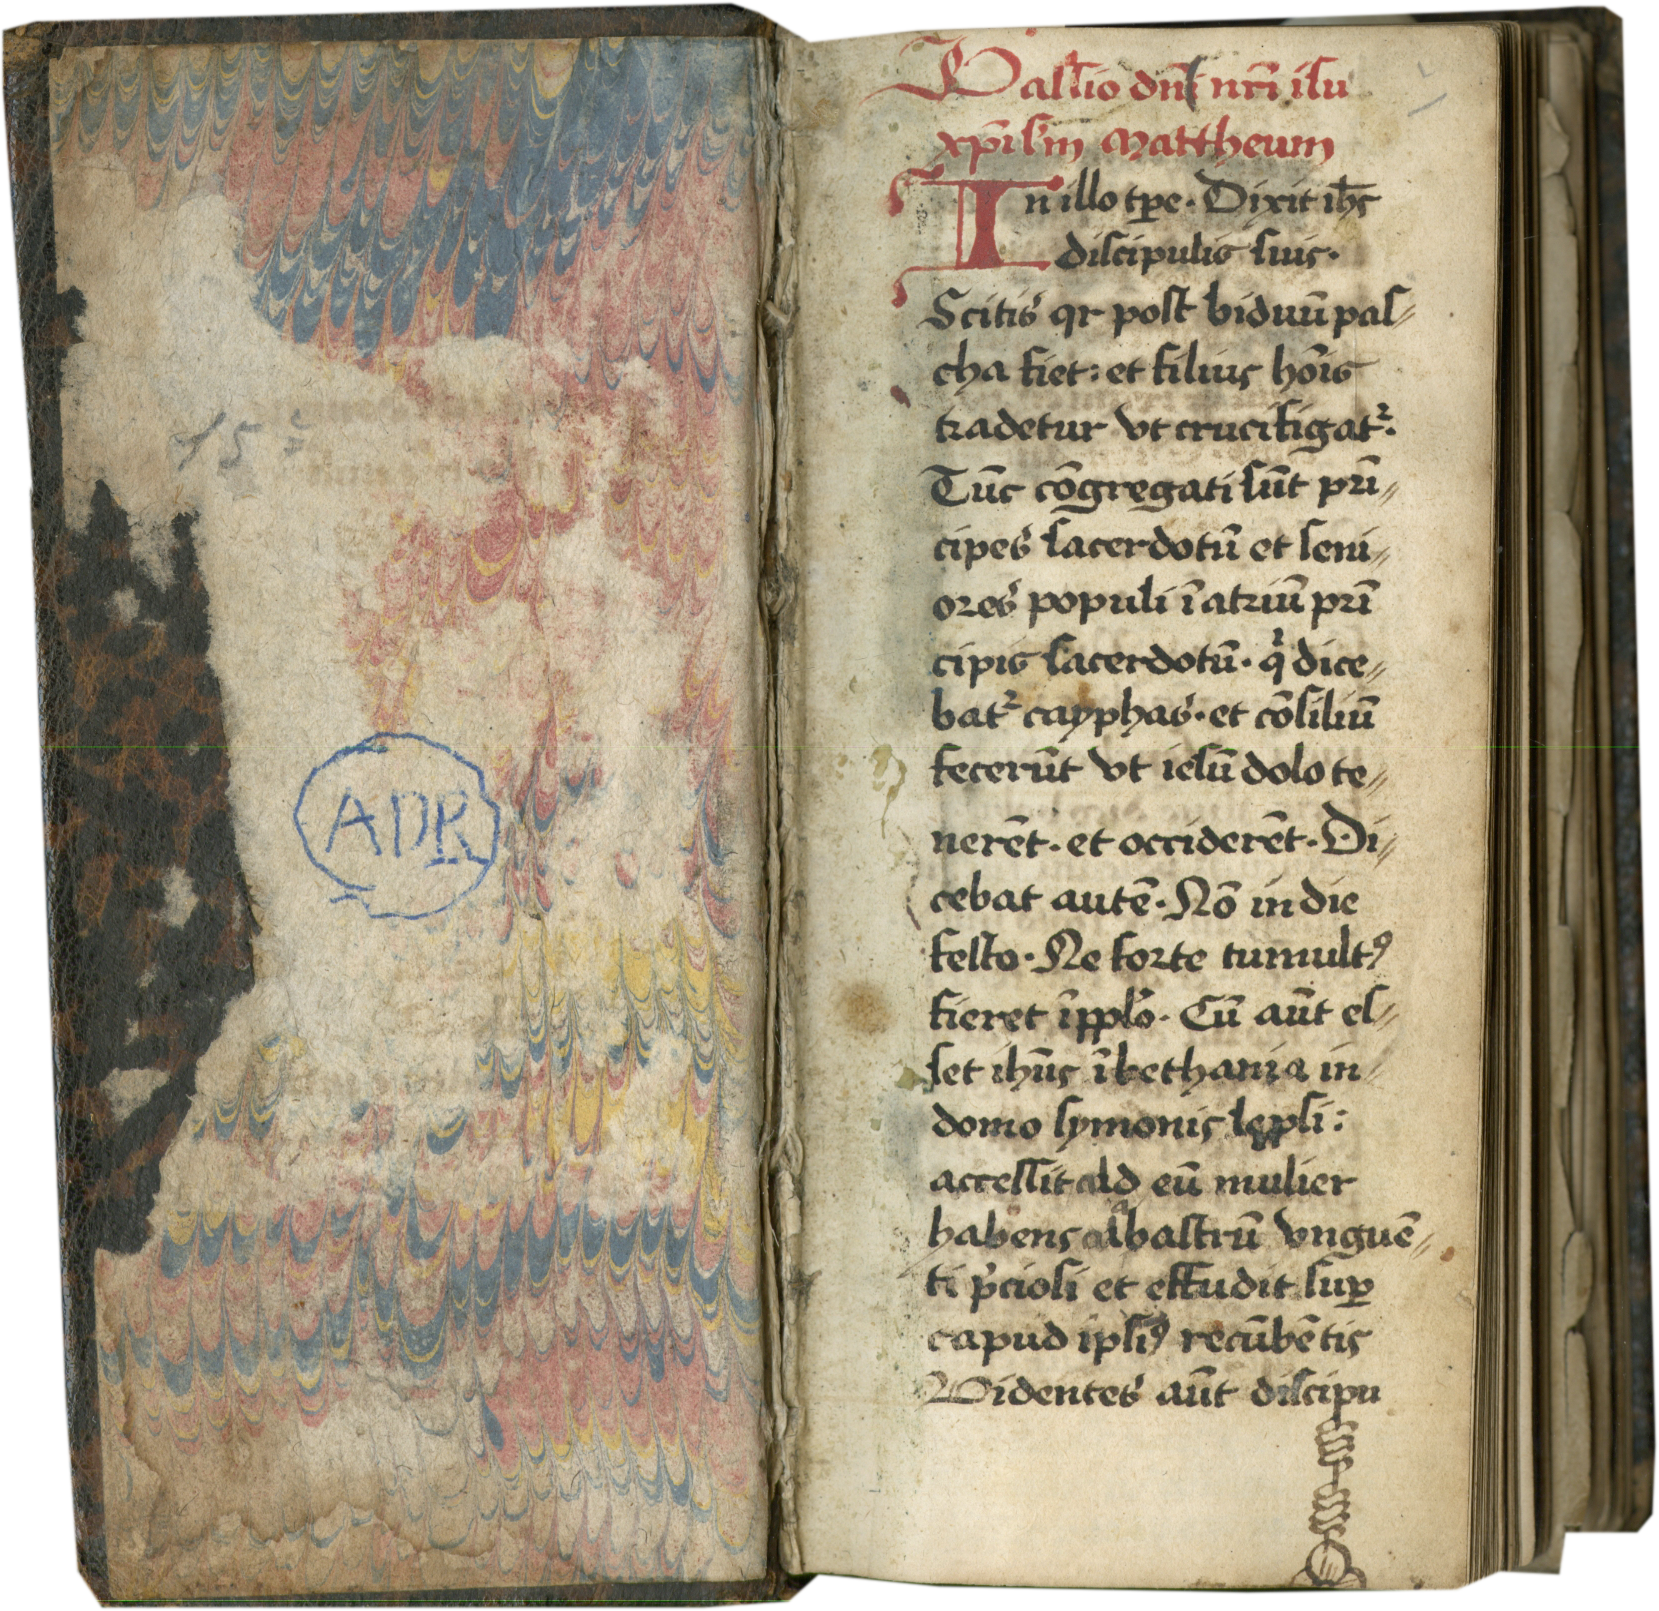 15
ADR
Passio dnī nr̄i ihu
xp̄i sm̄ Mattheum
In illo tp̄e · Dixit ih̄s
discipulis suis ·
Scitis qr post biduū pas〃
cha fiet : et filius hōis
tradetur vt crucifigat᷑ ·
Tūc cōgregati sūt prī〃
cipes sacerdotū et seni〃
ores populi ī atriū prī
cipis sacerdotū · q̇ dice〃
bat᷑ cayphas · et cōsiliū
fecerūt vt iesū dolo te〃
nerēt · et occiderēt · Di〃
cebat autē · Nō in die
festo · Ne forte tumultꝰ
fieret ī pplō · Cū aūt es〃
set ih̄us ī bethania in〃
domo symonis lepsi :
accessit ad eū mulier
habens alabastrū vnguē〃
ti p̄ciosi et effudit suꝑ
capud ipsiꝰ recūbētis
Videntes aūt discipu